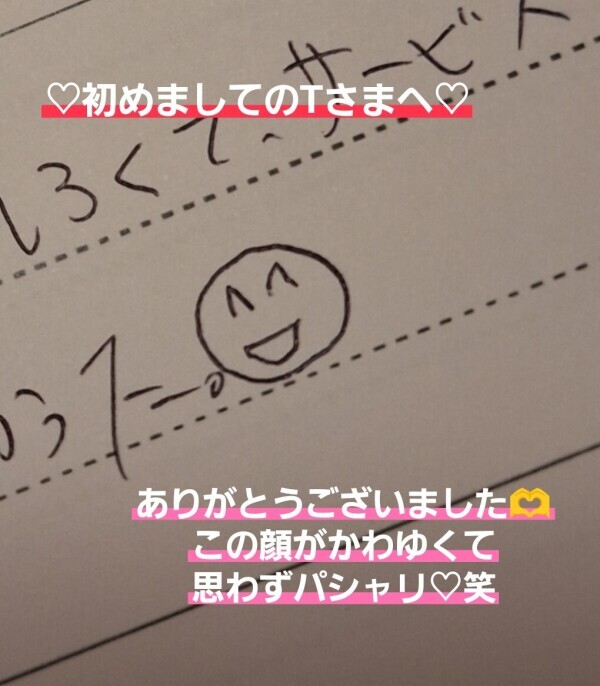 ♡初めましてのTさまへ♡
しろくて、サービス
かった。
ありがとうございました🫶
この顔がかわゆくて
思わずパシャリ♡笑